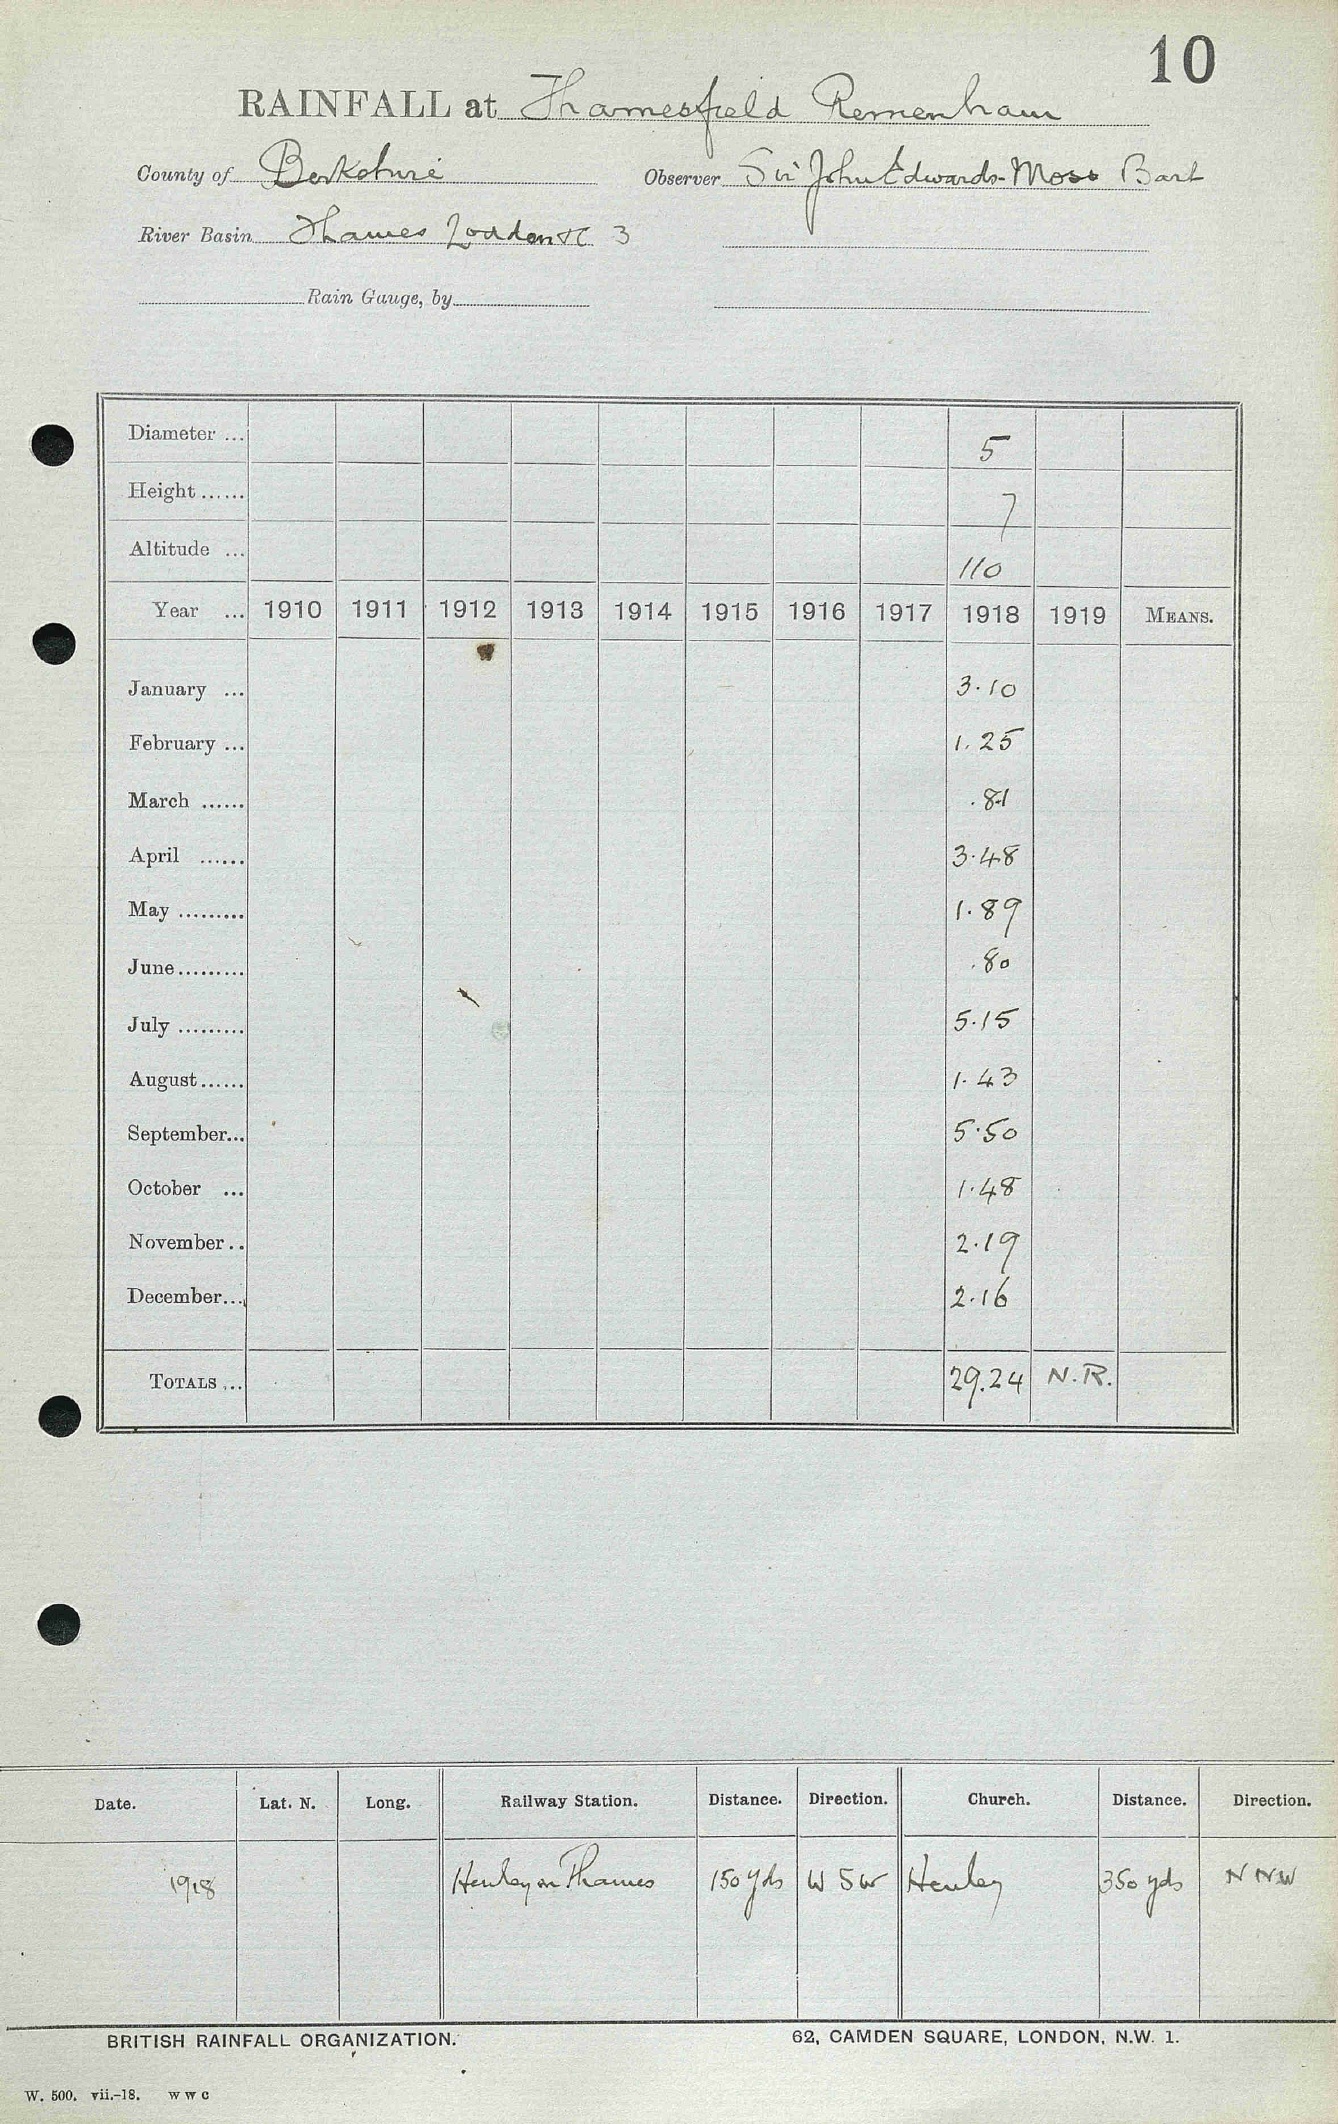 10
RAINFALL at Thamesfield Remenham
County of Berkshire Observer Sir John Edwards-Moss Bart
River Basin Thames Loddon &c 3
Rain Gauge, by
Diameter ... 5
Height ...... 7
Altitude ... 110
Year ... 1910 1911 1912 1913 1914 1915 1916 1917 1918 1919 MEANS.
January ... 3.10
February ... 1.25
March ...... .81
April ...... 3.48
May ......... 1.89
June ......... .80
July ......... 5.15
August ...... 1.43
September... 5.50
October ... 1.48
November .. 2.19
December... 2.16
TOTALS ... 29.24 N.R.
Date. Lat. N. Long. Railway Station. Distance. Direction. Church. Distance. Direction.
1918 Henley on Thames 150 yds W S W Henley 350 yds N N W
BRITISH RAINFALL ORGANIZATION. 62, CAMDEN SQUARE, LONDON, N.W. 1.
W. 500. vii.-18. W W C